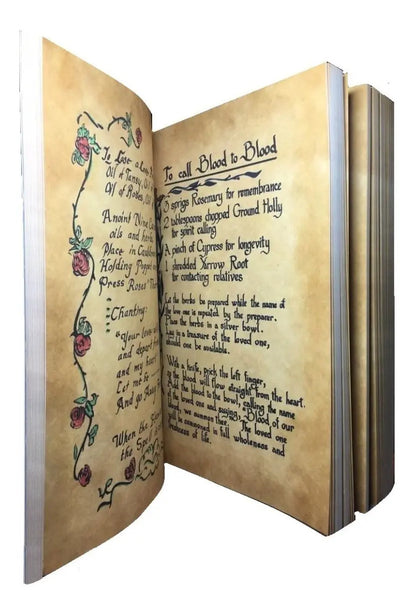 To Lose a Love
Oil of Tansy, Oil
Oil of Roses, Oil
Anoint Nine
oils and herbs
Place in
Holding
Press Roses
Chanting:
"Your love
and depart
and my heart
Let me be
And go
When the
the Spell
To call Blood to Blood
3 sprigs Rosemary for remembrance
2 tablespoons chopped Ground Holly
for spirit calling
A pinch of Cypress for longevity
1 shredded Yarrow Root
for contacting relatives
Let the herbs be prepared while the name of
the love one is repeated by the preparer.
Place the herbs in a silver bowl.
Lay in a treasure of the loved one,
should one be available.
With a knife, prick the left finger,
as the blood will flow straight from the heart.
Add the blood to the bowl, calling the name
of the loved one and saying, "Blood of our
blood, we summon thee." The loved one
is summoned in full wholeness and
of life.